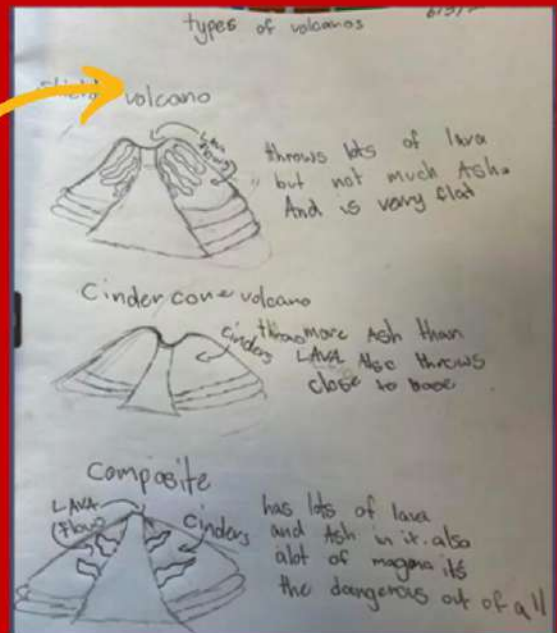 types of volcanos
volcano
LAVA
flows
throws lots of lava
but not much Ash.
And is very flat
Cinder cone volcano
cinders
more Ash than
LAVA Also throws
close to base
Composite
LAVA
(flow)
cinders
has lots of lava
and Ash in it. also
alot of magma its
the dangerous out of all